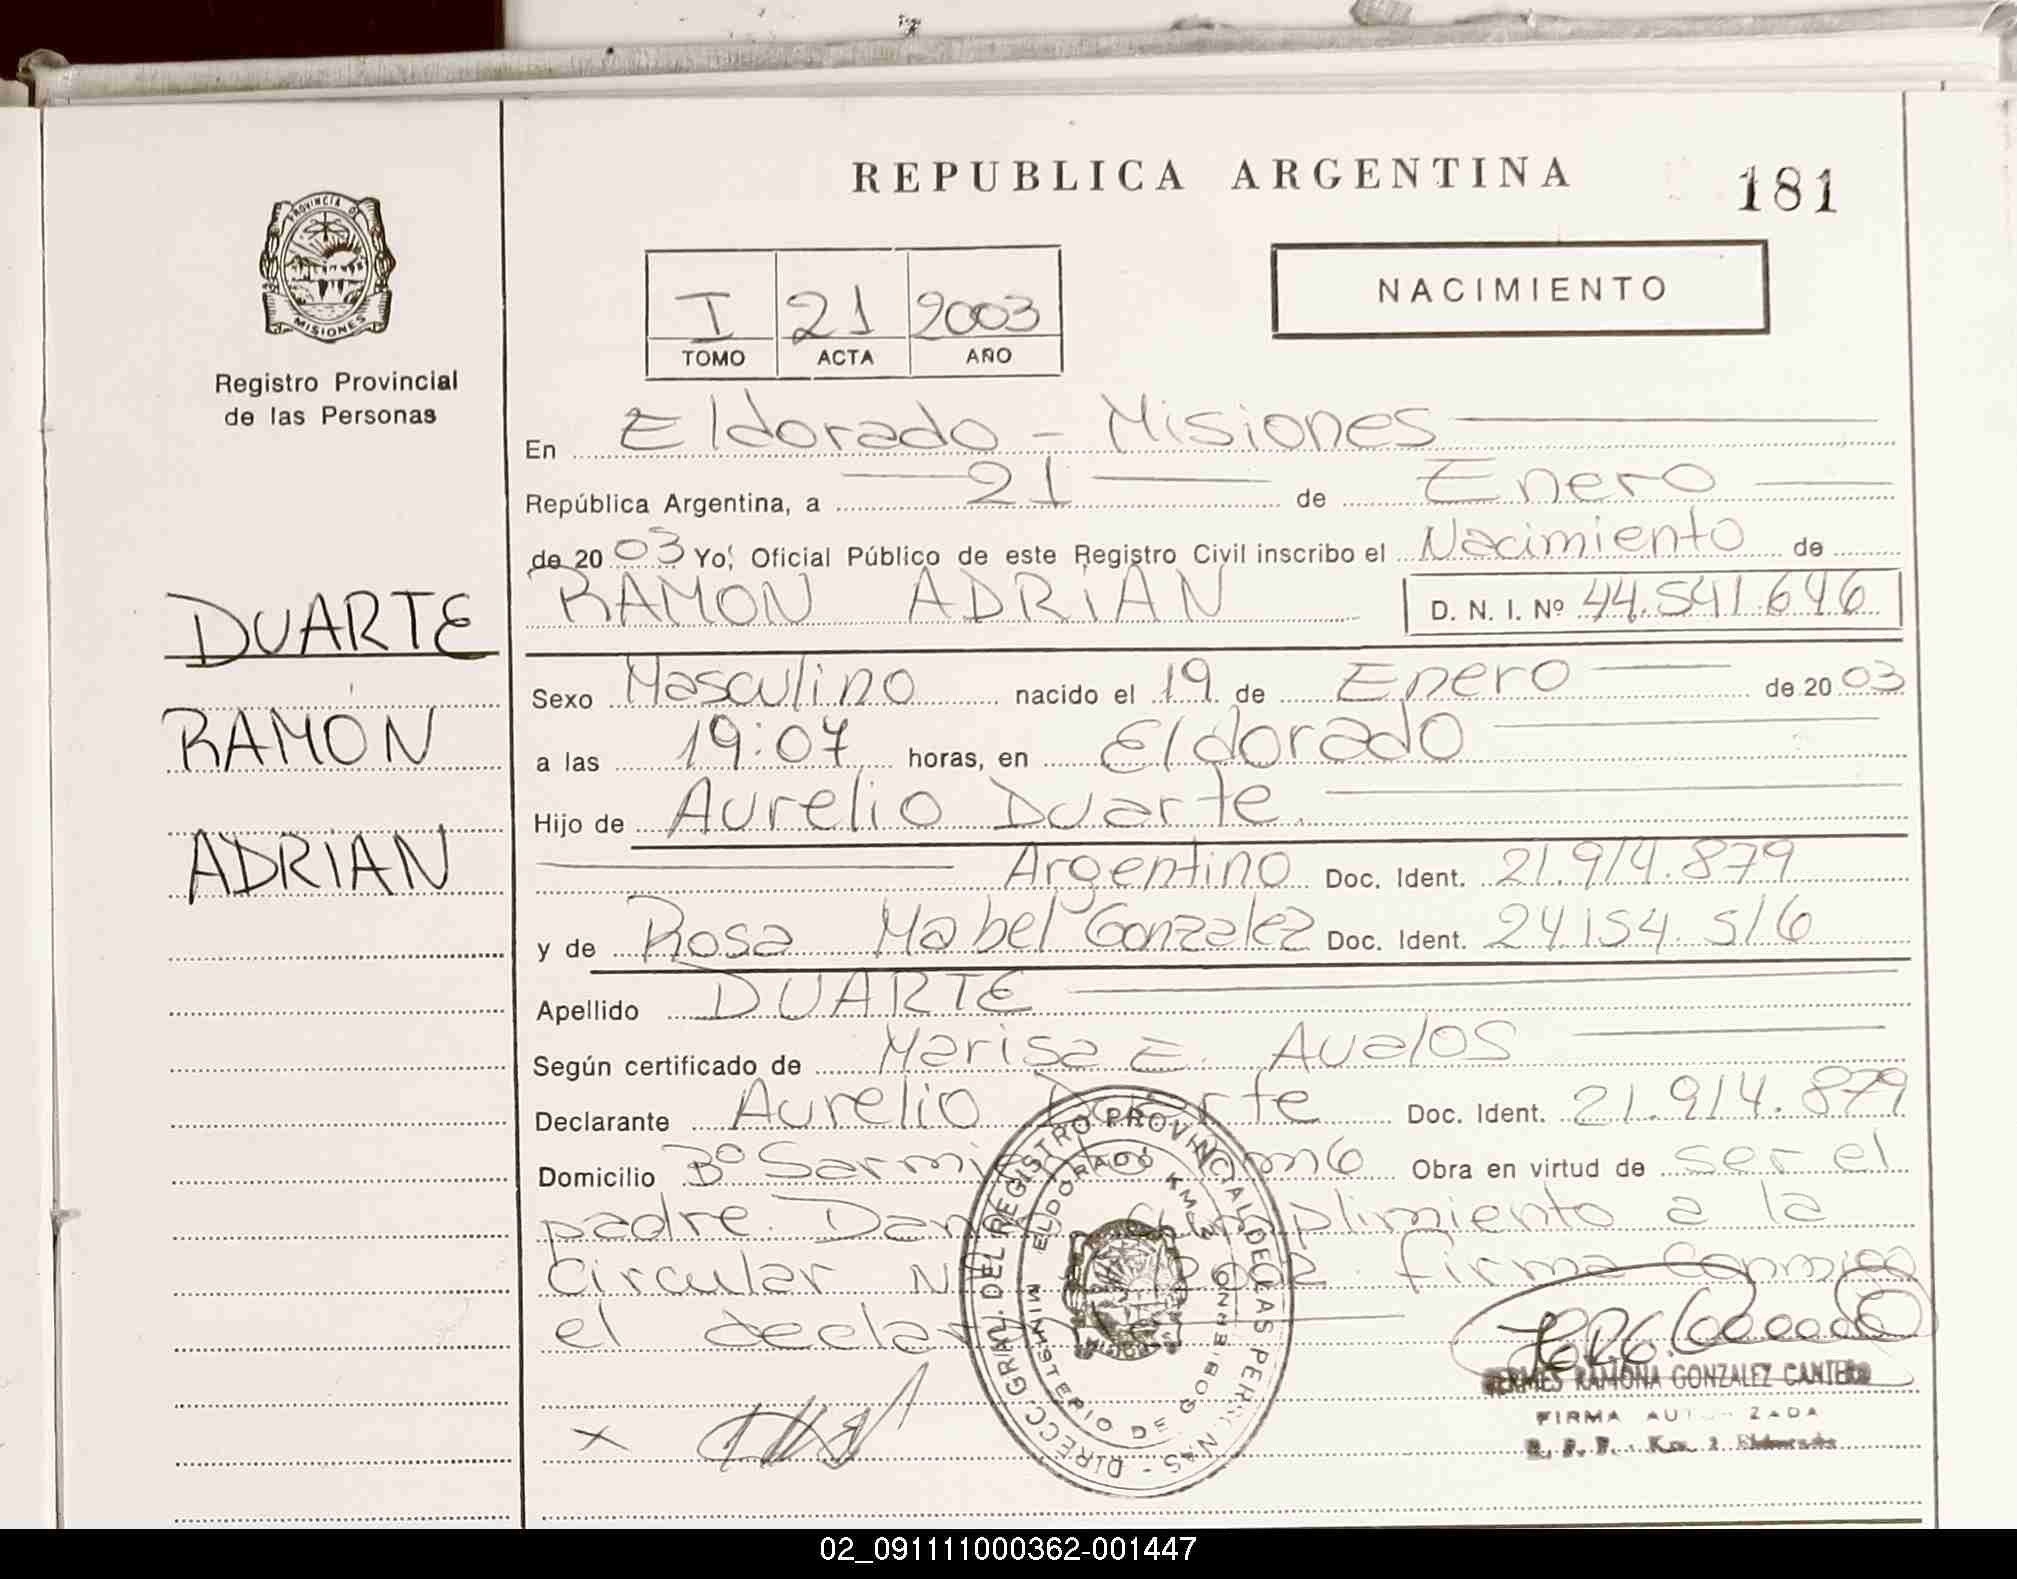 REPUBLICA ARGENTINA
181
PROVINCIA DE
MISIONES
Registro Provincial
de las Personas
I 21 2003
TOMO ACTA AÑO
NACIMIENTO
En Eldorado - Misiones
República Argentina, a 21 de Enero
de 2003 Yo, Oficial Público de este Registro Civil inscribo el Nacimiento de
RAMON ADRIAN D. N. I. Nº 44.541.646
DUARTE
RAMON
ADRIAN
Sexo Masculino nacido el 19 de Enero de 2003
a las 19:07 horas, en Eldorado
Hijo de Aurelio Duarte
Argentino Doc. Ident. 21.914.879
y de Rosa Mabel Gonzalez Doc. Ident. 24.154.516
Apellido DUARTE
Según certificado de Marisa E. Avalos
Declarante Aurelio Duarte Doc. Ident. 21.914.879
Domicilio Bº Obra en virtud de ser el
padre. cumplimiento a la
Circular firma conmigo
el
DIRECC. GRAL. DEL REGISTRO PROVINCIAL DE LAS PERSONAS
ELDORADO KM
MINISTERIO DE GOBIERNO
HERMES RAMONA GONZALEZ CANTERO
FIRMA AUTORIZADA
Km. 2 Eldorado
02_091111000362-001447